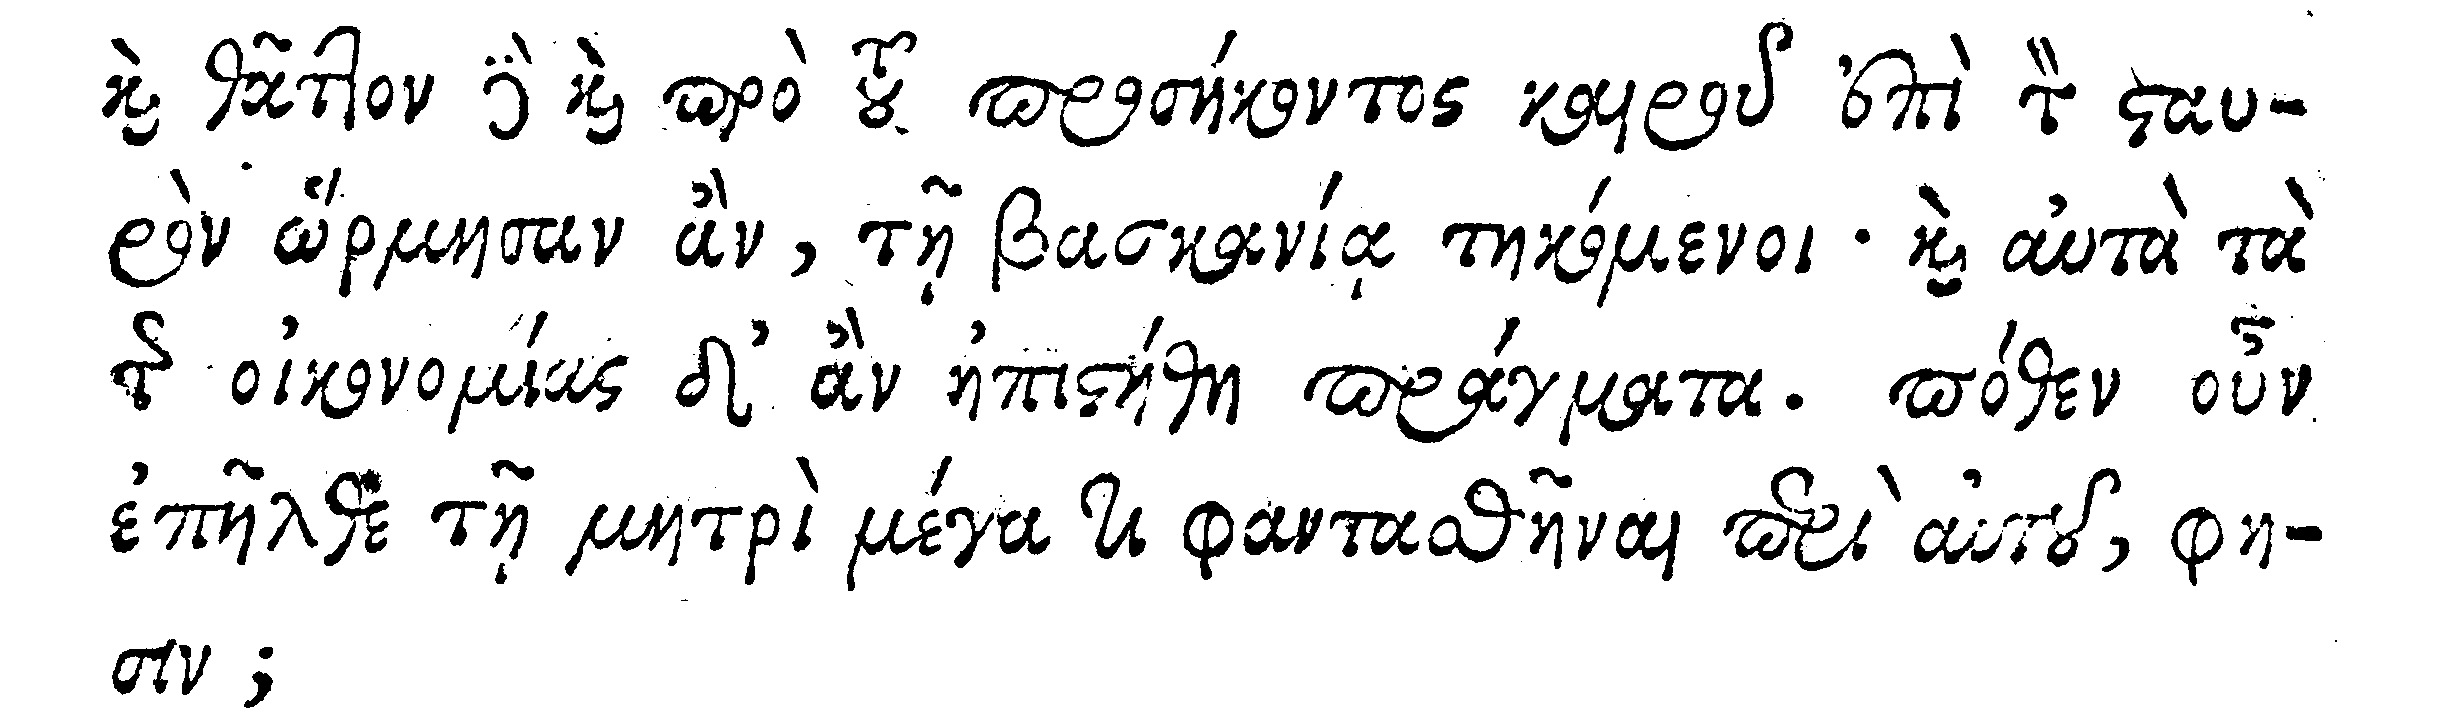 καὶ θᾶττον ἂν καὶ πρὸ τοῦ προσήκοντος καιροῦ ἐπὶ τὸν σταυ-
ρὸν ὥρμησαν ἂν, τῇ βασκανίᾳ τηκόμενοι· καὶ αὐτὰ τὰ
τῆς οἰκονομίας δι' ἂν ἠπιστήθη πράγματα. πόθεν οὖν
ἐπῆλθε τῇ μητρὶ μέγα τι φαντασθῆναι περὶ αὐτοῦ, φη-
σιν;